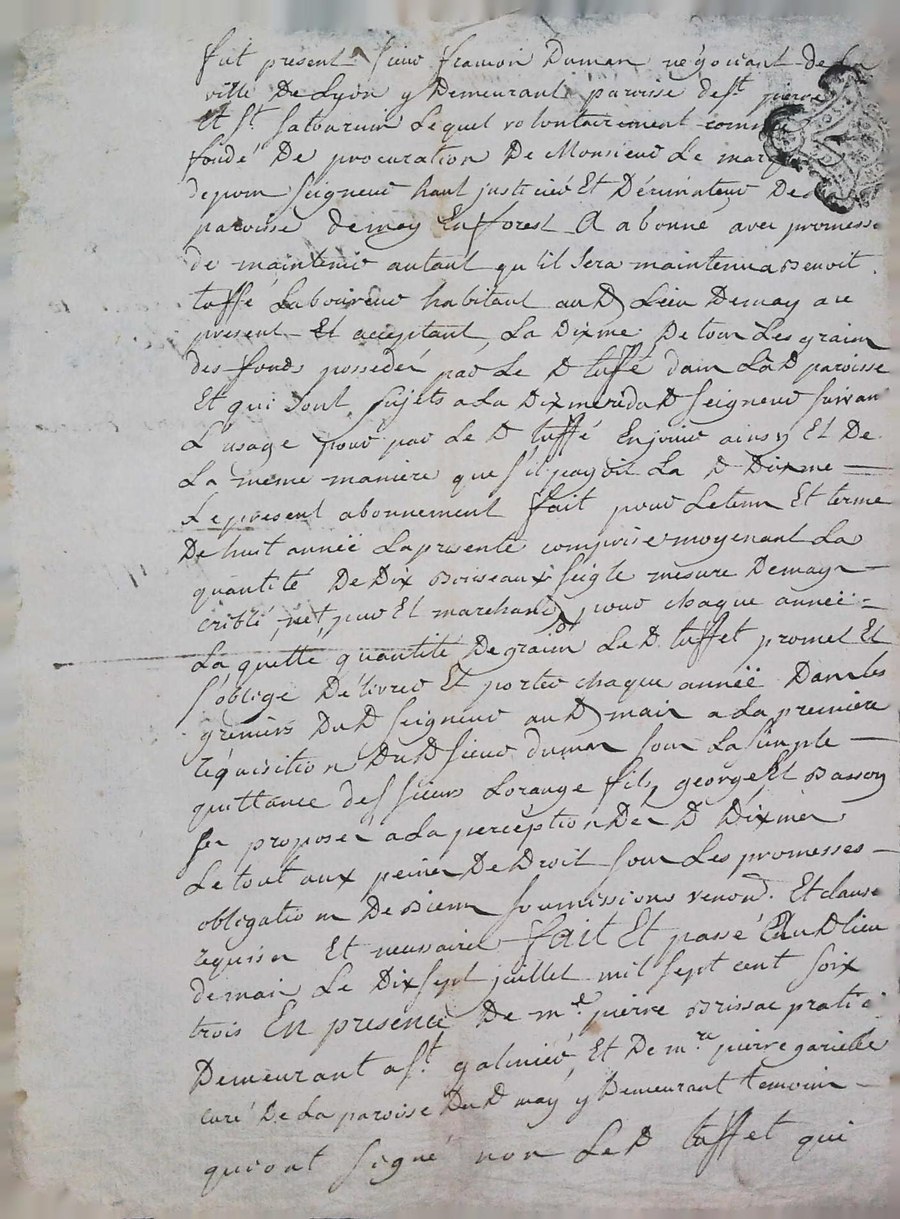 fut present sieur francois Duman négotiant de la
ville De Lyon y Demeurant paroisse de st pierre
Et st saturnin Lequel volontairement comme
fondé De procuration De Monsieur Le marquis
depom seigneur haut justicier Et Décimateur De
paroisse demay En forest A abonné avec promesse
de maintenir autant qu'il sera maintenu a Benoit
tuffé Laboureur habitant au D Lieu Demay ace
present Et acceptant La Dixme De tous Les grains
des fonds possedés par Le D tuffé dans La D paroisse
Et qui sont sujets a La Dixmerie du D seigneur suivan
L'usage pour par Le D tuffé En jouir ainsy Et De
La meme manière que s'il payoit La D Dixme
Le present abonnement fait pour Le tems Et terme
De huit année La presente comprise moyenant La
quantité De Dix Boiseaux seigle mesure Demay
criblé, net, pur Et marchand pour chaque année
La quelle quantité De grains Le D. tuffet promet Et
s'oblige De livrer Et porter chaque année Dans les
greniers Du D seigneur au D mais a La première
réquisition Du D sieur duman sous La simple
quittance des sieurs Lorange fils, george, Et Basson
ses proposés a La perception Des D Dixmes
Le tout aux peines De Droit sous Les promesses
obligation De Biens soumissions renond. Et clause
requises Et necessaires fait Et passé Au D lieu
demais Le Dix sept juillet mil sept cent soix
trois En presence De me. pierre Brissac pratici
Demeurant a st galmier, Et De mre pierre garielle
curé De La paroisse Du D may y Demeurant temoins
qui ont signé non Le D tuffet qui